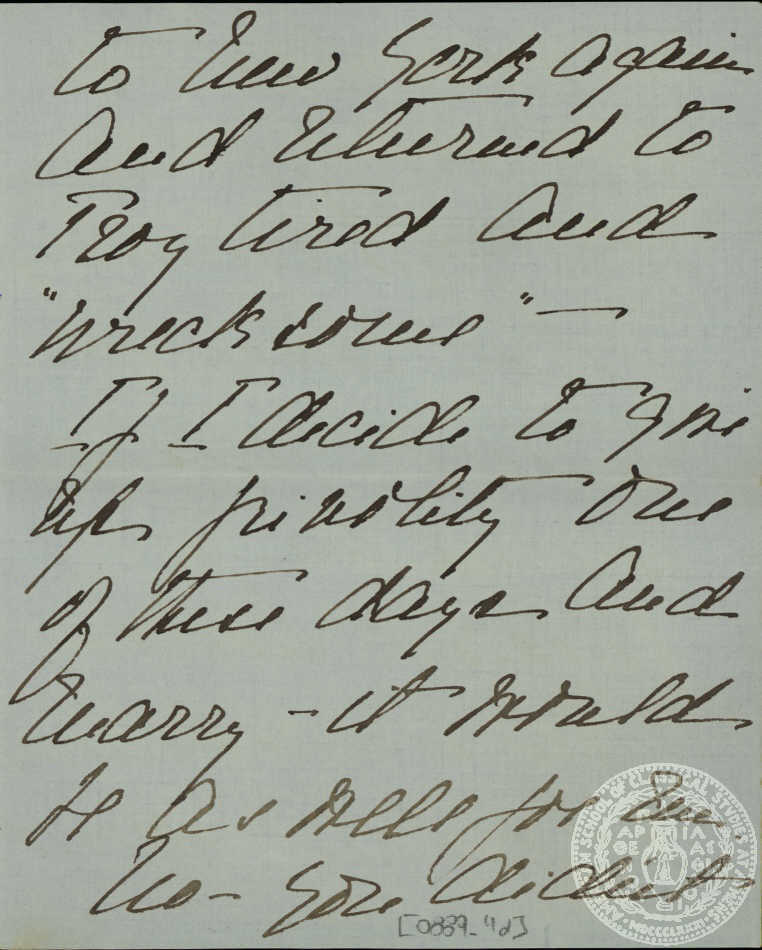 to New York again
and returned to
Troy tired and
"wrecksome" —
If I decide to give
up frivolity one
of these days and
marry - it would
be as well for me.
No - you didn't
[0889_4d]